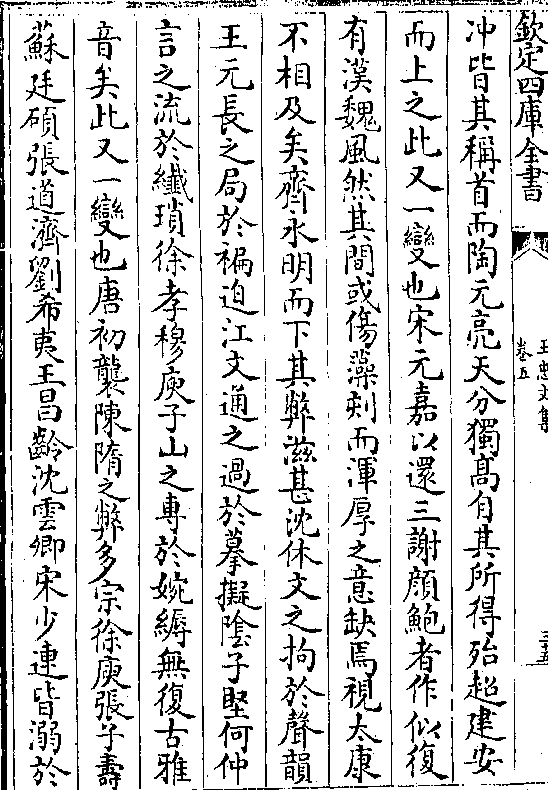 欽定四庫全書
王忠文集
卷五
冲皆其稱首而陶元亮天分獨高自其所得殆超建安
而上之此又一變也宋元嘉以還三謝顔鮑者作似復
有漢魏風然其間或傷藻刻而渾厚之意缺焉視太康
不相及矣齊永明而下其弊滋甚沈休文之拘於聲韻
王元長之局於褊迫江文通之過於摹擬隂子堅何仲
言之流於纖瑣徐孝穆庾子山之專於婉縟無復古雅
音矣此又一變也唐初襲陳隋之弊多宗徐庾張子壽
蘇廷碩張道濟劉希夷王昌齡沈雲卿宋少連皆溺於